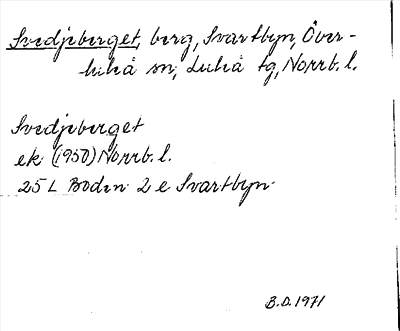 Svedjeberget, berg, Svartbyn, Över-
luleå sn, Luleå tg, Norrb. l.
Svedjeberget
ek (1950) Norrb. l.
25 L Boden 2 e Svartbyn
B.D. 1971